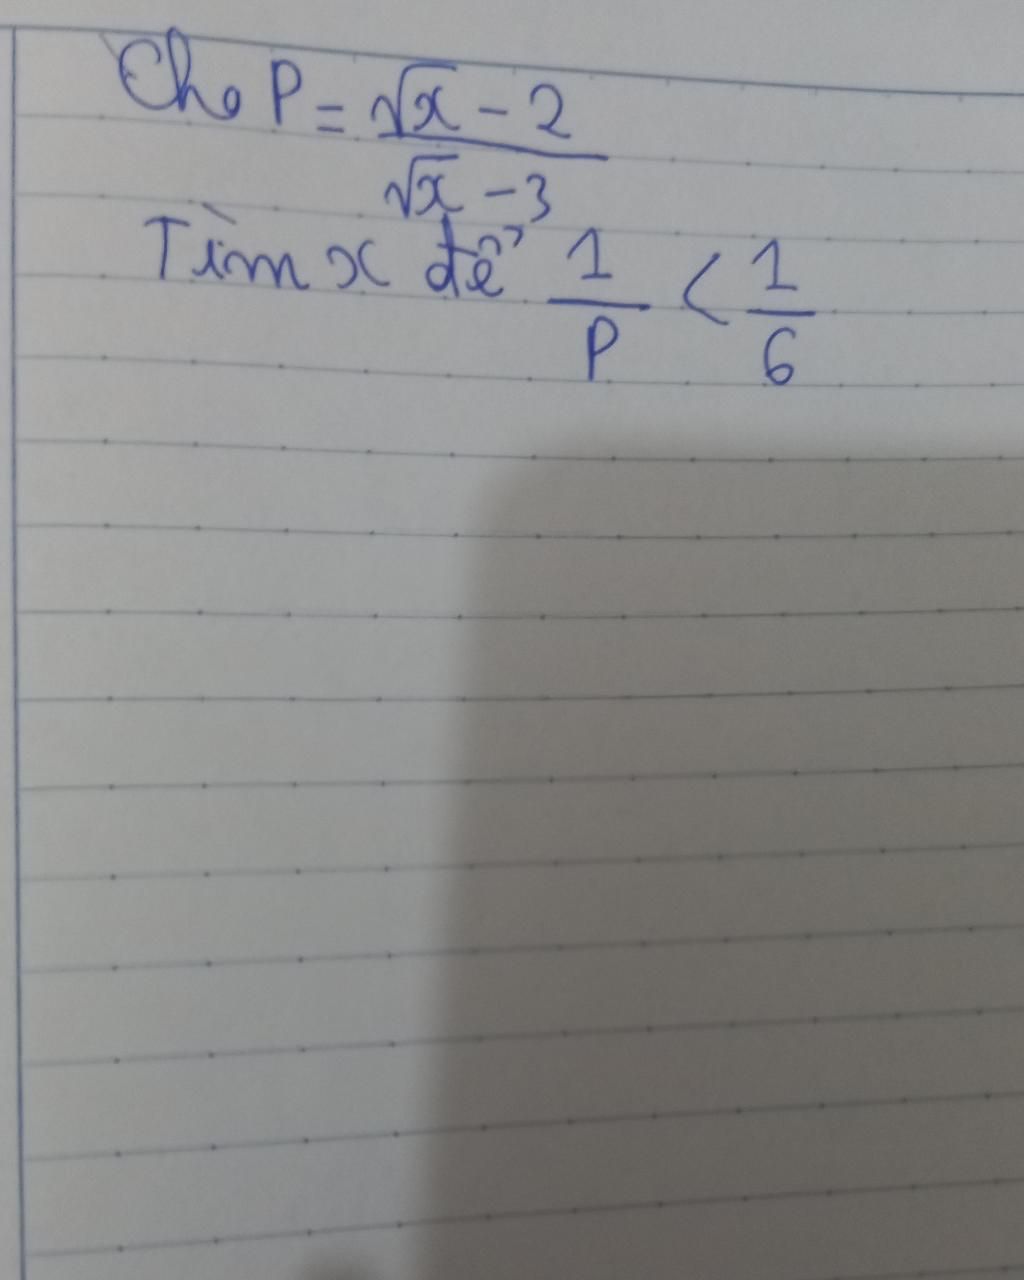 Cho P = √x - 2 / √x - 3
Tìm x để 1/P < 1/6